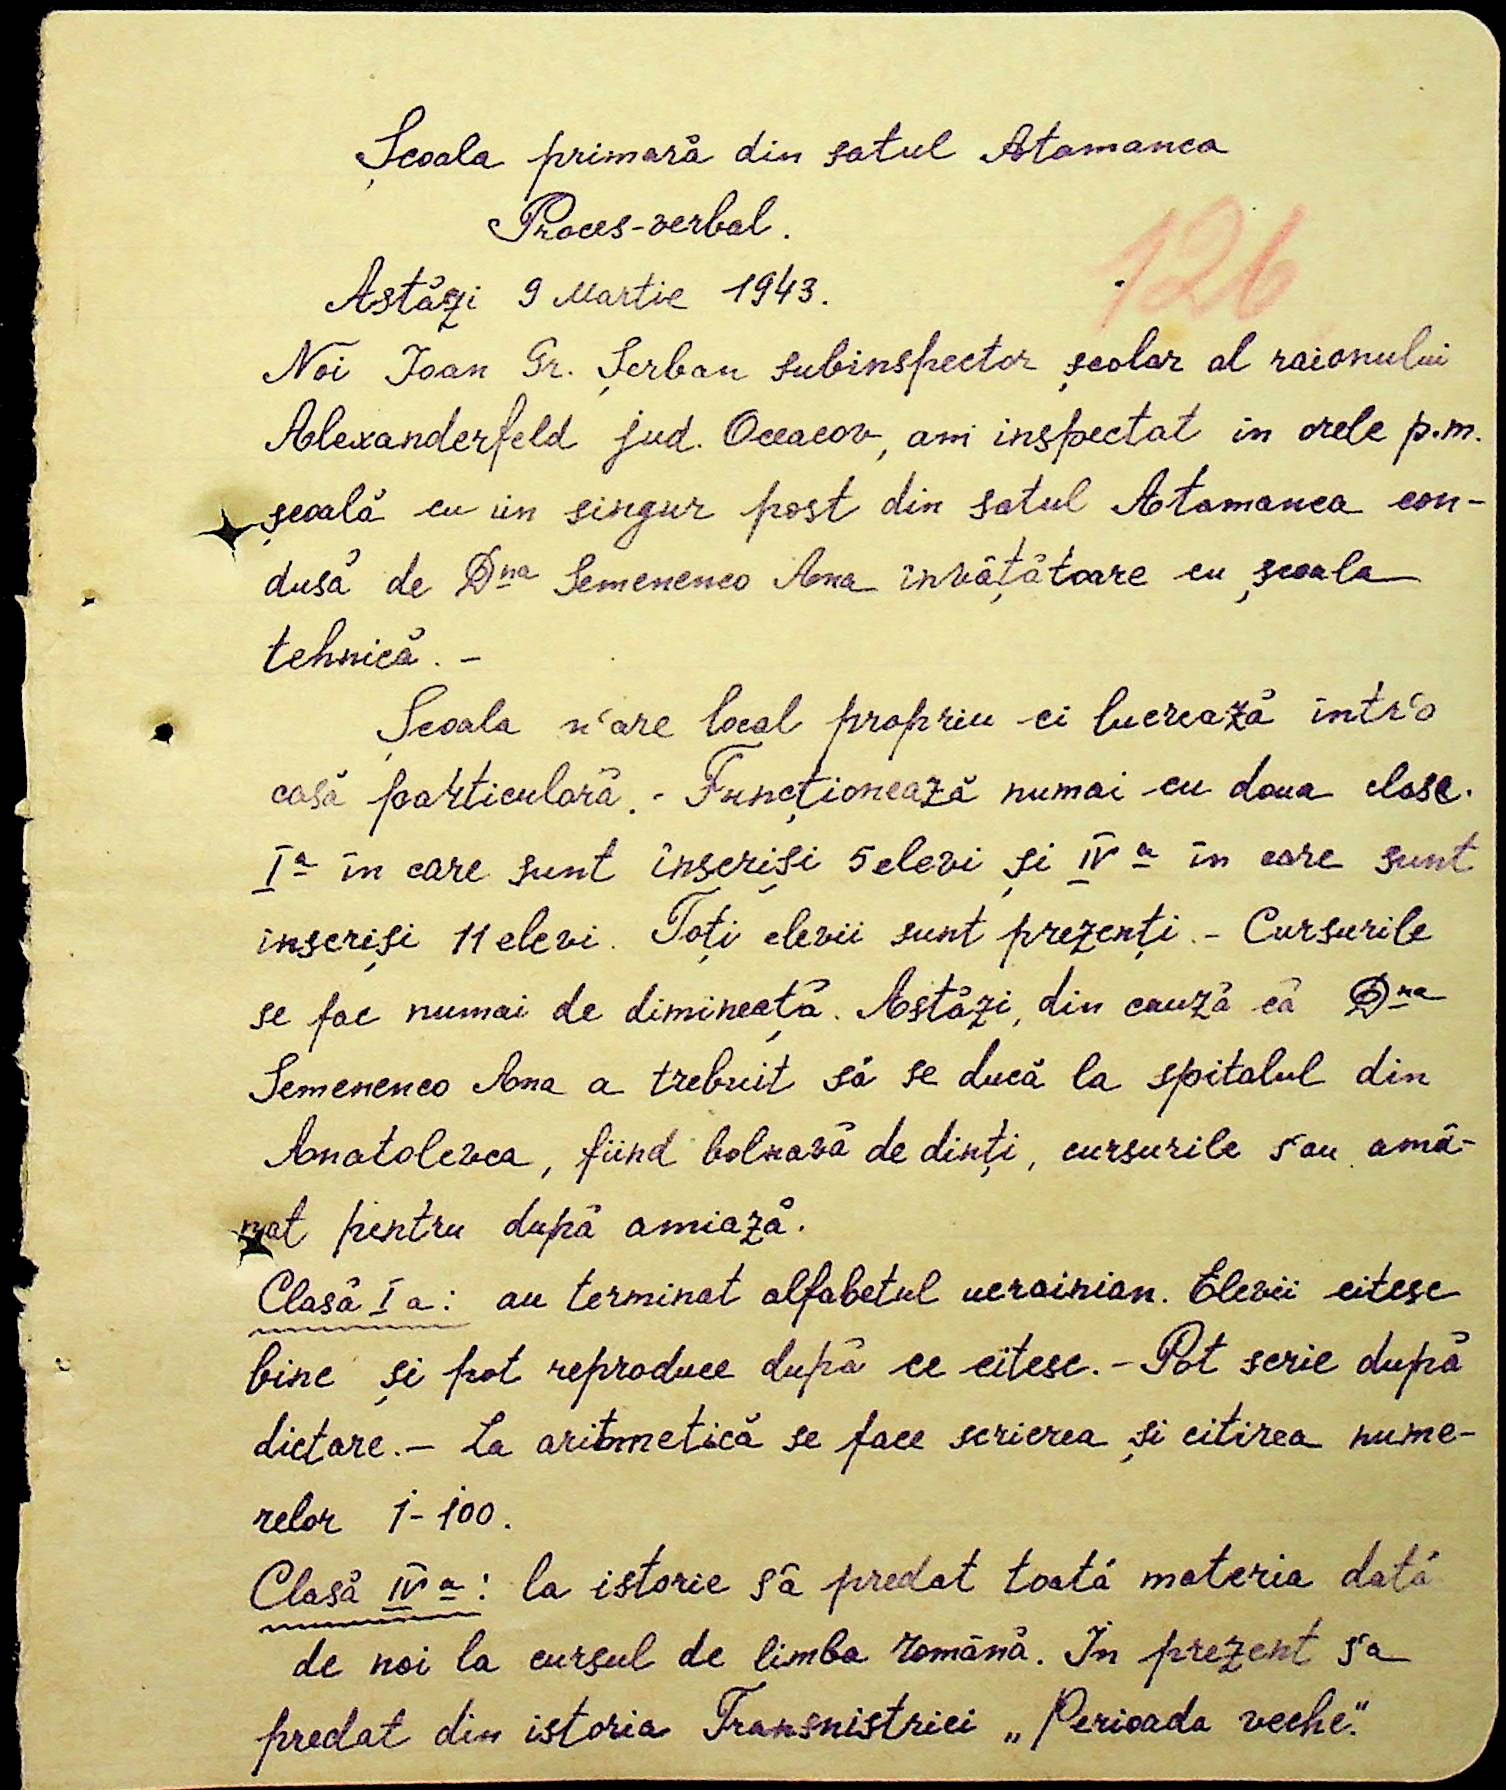 Școala primară din satul Atamanca
Proces-verbal.
126
Astăzi 9 Martie 1943.
Noi Ioan Gr. Șerban subinspector școlar al raionului
Alexanderfeld jud. Oceacov, am inspectat in orele p.m.
școală cu un singur post din satul Atamanca con-
dusă de Dna Semenenco Ana învățătoare cu școala
tehnică. -
Școala n'are local propriu ci lucrează într'o
casă particulară. - Funcționează numai cu doua clase.
Ia în care sunt înscriși 5 elevi și IVa în care sunt
inscriși 11 elevi. Toți elevii sunt prezenți. - Cursurile
se fac numai de dimineață. Astăzi, din cauză că Dna
Semenenco Ana a trebuit să se ducă la spitalul din
Anatolevca, fiind bolnavă de dinți, cursurile s'au amâ-
nat pentru după amiază.
Clasă I a: au terminat alfabetul ucrainian. Elevii citesc
bine și pot reproduce după ce citesc. - Pot scrie după
dictare. - La aritmetică se face scrierea și citirea nume-
relor 1-100.
Clasă IV a: la istorie s'a predat toată materia dată
de noi la cursul de limba română. In prezent s'a
predat din istoria Transnistriei „Perioada veche".